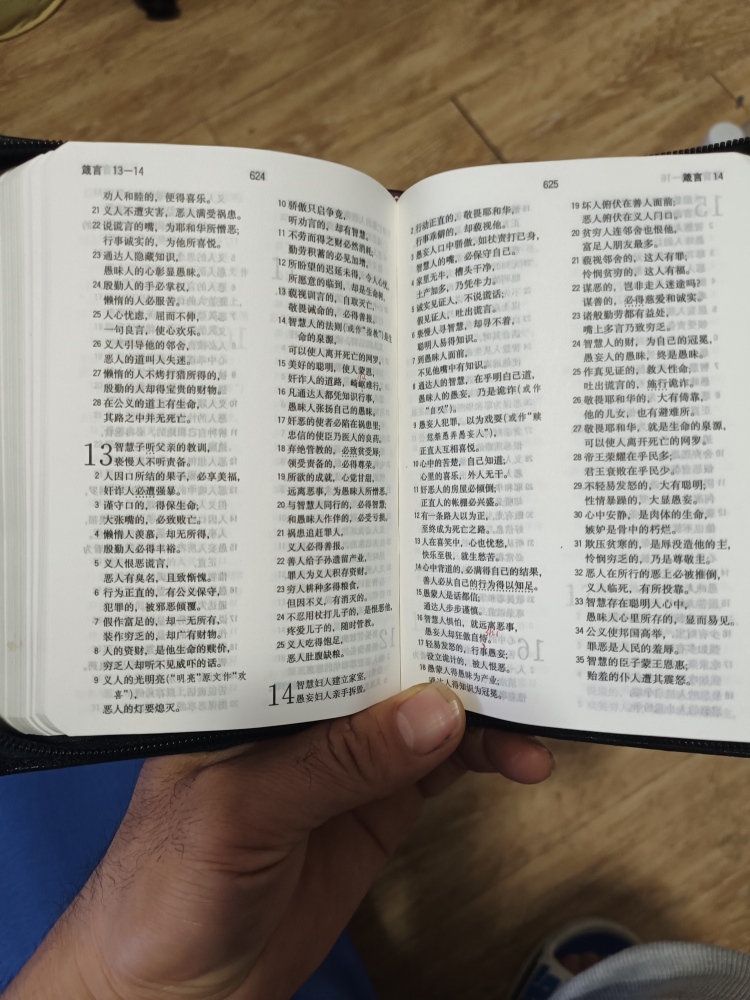 箴言 13—14
624
劝人和睦的，便得喜乐。
21 义人不遭灾害，恶人满受祸患。
22 说谎言的嘴，为耶和华所憎恶；
行事诚实的，为他所喜悦。
23 通达人隐藏知识，
愚昧人的心彰显愚昧。
24 殷勤人的手必掌权，
懒惰的人必服苦。
25 人心忧虑，屈而不伸，
一句良言，使心欢乐。
26 义人引导他的邻舍，
恶人的道叫人失迷。
27 懒惰的人不烤打猎所得的，
殷勤的人却得宝贵的财物。
28 在公义的道上有生命，
其路之中并无死亡。
13 智慧子听父亲的教训，
亵慢人不听责备。
2 人因口所结的果子，必享美福，
奸诈人必遭强暴。
3 谨守口的，得保生命；
大张嘴的，必致败亡。
4 懒惰人羡慕，却无所得，
殷勤人必得丰裕。
5 义人恨恶谎言，
恶人有臭名，且致惭愧。
6 行为正直的，有公义保守，
犯罪的，被邪恶倾覆。
7 假作富足的，却一无所有，
装作穷乏的，却广有财物。
8 人的资财，是他生命的赎价，
穷乏人却听不见威吓的话。
9 义人的光明亮（“明亮”原文作“欢
喜”），
恶人的灯要熄灭。
10 骄傲只启争竞，
听劝言的，却有智慧。
11 不劳而得之财必然消耗；
勤劳积蓄的必见加增。
12 所盼望的迟延未得，令人心忧，
所愿意的临到，却是生命树。
13 藐视训言的，自取灭亡，
敬畏诫命的，必得善报。
14 智慧人的法则（或作“指教”）是生
命的泉源，
可以使人离开死亡的网罗。
15 美好的聪明，使人蒙恩，
奸诈人的道路，崎岖难行。
16 凡通达人都凭知识行事，
愚昧人张扬自己的愚昧。
17 奸恶的使者必陷在祸患里；
忠信的使臣乃医人的良药。
18 弃绝管教的，必致贫受辱；
领受责备的，必得尊荣。
19 所欲的成就，心觉甘甜，
远离恶事，为愚昧人所憎恶。
20 与智慧人同行的，必得智慧；
和愚昧人作伴的，必受亏损。
21 祸患追赶罪人，
义人必得善报。
22 善人给子孙遗留产业，
罪人为义人积存资财。
23 穷人耕种多得粮食，
但因不义，有消灭的。
24 不忍用杖打儿子的，是恨恶他，
疼爱儿子的，随时管教。
25 义人吃得饱足，
恶人肚腹缺粮。
14 智慧妇人建立家室，
愚妄妇人亲手拆毁。
625
箴言 14
2 行动正直的，敬畏耶和华，
行事乖僻的，却藐视他。
3 愚妄人口中骄傲，如杖责打己身，
智慧人的嘴，必保守自己。
4 家里无牛，槽头干净，
土产加多，乃凭牛力。
5 诚实见证人，不说谎话；
假见证人，吐出谎言。
6 亵慢人寻智慧，却寻不着，
聪明人易得知识。
7 到愚昧人面前，
不见他嘴中有知识。
8 通达人的智慧，在乎明白己道，
愚昧人的愚妄，乃是诡诈（或作
“自欺”）。
9 愚妄人犯罪，以为戏耍（或作“赎
愆祭愚弄愚妄人”），
正直人互相喜悦。
10 心中的苦楚，自己知道；
心里的喜乐，外人无干。
11 奸恶人的房屋必倾倒；
正直人的帐棚必兴盛。
12 有一条路人以为正，
至终成为死亡之路。
13 人在喜笑中，心也忧愁，
快乐至极，就生愁苦。
14 心中背道的，必满得自己的结果，
善人必从自己的行为得以知足。
15 愚蒙人是话都信，
通达人步步谨慎。
16 智慧人惧怕，就远离恶事，
愚妄人却狂傲自恃。
17 轻易发怒的，行事愚妄；
设立诡计的，被人恨恶。
18 愚蒙人得愚昧为产业，
通达人得知识为冠冕。
19 坏人俯伏在善人面前，
恶人俯伏在义人门口。
20 贫穷人连邻舍也恨他，
富足人朋友最多。
21 藐视邻舍的，这人有罪；
怜悯贫穷的，这人有福。
22 谋恶的，岂非走入迷途吗？
谋善的，必得慈爱和诚实。
23 诸般勤劳都有益处，
嘴上多言乃致穷乏。
24 智慧人的财，为自己的冠冕，
愚妄人的愚昧，终是愚昧。
25 作真见证的，救人性命，
吐出谎言的，施行诡诈。
26 敬畏耶和华的，大有倚靠，
他的儿女，也有避难所。
27 敬畏耶和华，就是生命的泉源，
可以使人离开死亡的网罗。
28 帝王荣耀在乎民多；
君王衰败在乎民少。
29 不轻易发怒的，大有聪明；
性情暴躁的，大显愚妄。
30 心中安静，是肉体的生命，
嫉妒是骨中的朽烂。
31 欺压贫寒的，是辱没造他的主，
怜悯穷乏的，乃是尊敬主。
32 恶人在所行的恶上必被推倒，
义人临死，有所投靠。
33 智慧存在聪明人心中，
愚昧人心里所存的，显而易见。
34 公义使邦国高举，
罪恶是人民的羞辱。
35 智慧的臣子蒙王恩惠；
贻羞的仆人遭其震怒。